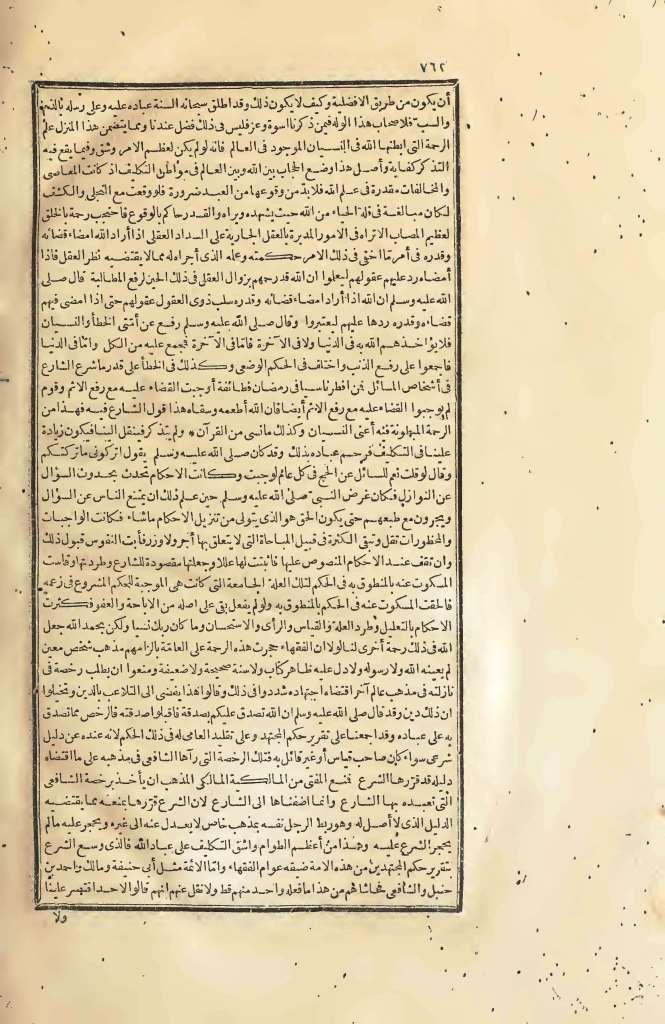 ٧٦٢
أن يكون من طريق الافضلية وكيف لا يكون ذلك وقد اطلق سبحانه السنة عباده عليه وعلى رسله بالذم
والسب فلاصحاب هذا الوله فيمن ذكرنا اسوة وعز فليس فى ذلك فضل عندنا ومما يتضمن هذا المنزل علم
الرحمة التى ابطنها الله فى النسيان الموجود فى العالم فانه لولم يكن لعظم الامر وشق وفيما يقع فيه
التذكر كفاية وأصل هذا وضع الحجاب بين الله وبين العالم فى موطن التكليف اذ كانت المعاصى
والمخالفات مقدرة فى علم الله فلابد من وقوعها من العبد ضرورة فلو وقعت مع التجلى والكشف
لكان مبالغة فى قلة الحياء من الله حيث يشهده ويراه والقدر حاكم بالوقوع فاحتجب رحمة بالخلق
لعظيم المصاب الاتراه فى الامور المدبرة بالعقل الجارية على السداد العقلى اذا أراد الله امضاء قضائه
وقدره فى أمر تما اخفى فى ذلك الامر حكمته وعلمه الذى أجراه له مما لا يقتضيه نظر العقل فاذا
أمضاه رد عليهم عقولهم ليعلموا ان الله قد رحمهم بزوال العقل فى ذلك الحين لرفع المطالبة قال صلى
الله عليه وسلم ان الله اذا أراد امضاء قضائه وقدره سلب ذوى العقول عقولهم حتى اذا امضى فيهم
قضاءه وقدره ردها عليهم ليعتبروا وقال صلى الله عليه وسلم رفع عن أمتى الخطأ والنسيان
فلا يؤاخذهم الله به فى الدنيا ولا فى الآخرة فاما فى الآخرة فمجمع عليه من الكل واما فى الدنيا
فاجمعوا على رفع الذنب واختلف فى الحكم الوضعى وكذلك فى الخطأ على قدر ما شرع الشارع
فى أشخاص المسائل فمن افطر ناسيا فى رمضان فطائفة أوجبت القضاء عليه مع رفع الاثم وقوم
لم يوجبوا القضاء عليه مع رفع الاثم أيضا فان الله أطعمه وسقاه هذا قول الشارع فيه فهذا من
الرحمة المبطونة فيه أعنى النسيان وكذلك ما نسى من القرآن ولم يتذكر فينقل الينا فيكون زيادة
علينا فى التكليف فرحم عباده بذلك وقد كان صلى الله عليه وسلم يقول اتركونى ما تركتكم
وقال لو قلت نعم للسائل عن الحج فى كل عام لوجبت وكانت الاحكام تحدث بحدوث السؤال
عن النوازل فكان غرض النبى صلى الله عليه وسلم حين علم ذلك ان يمتنع الناس عن السؤال
ويجرون مع طبعهم حتى يكون الحق هو الذى يتولى من تنزيل الاحكام ما شاء فكانت الواجبات
والمحظورات تقل وتبقى الكثرة فى قبيل المباحات التى لا يتعلق بها أجر ولا وزر فأبت النفوس قبول ذلك
وان تقف عند الاحكام المنصوص عليها فأثبتت لها عللا وجعلتها مقصودة للشارع وطردتها وقاست
المسكوت عنه بالمنطوق به فى الحكم لتلك العلة الجامعة التى كانت هى الموجبة للحكم المشروع فى زعمه
فالحقت المسكوت عنه فى الحكم بالمنطوق به ولو لم يفعل بقى على اصله من الاباحة والعفو فكثرت
الاحكام بالتعليل وطرد العلة والقياس والرأى والاستحسان وما كان ربك نسيا ولكن بحمد الله جعل
الله فى ذلك رحمة أخرى لنا لولا ان الفقهاء حجرت هذه الرحمة على العامة بالزامهم مذهب شخص معين
لم يعينه الله ولا رسوله ولا دل عليه ظاهر كتاب ولا سنة صحيحة ولا ضعيفة ومنعوا ان يطلب رخصة فى
نازلته فى مذهب عالم آخر اقتضاه اجتهاده شددوا فى ذلك وقالوا هذا يفضى الى التلاعب بالدين وتخيلوا
ان ذلك دين وقد قال صلى الله عليه وسلم ان الله تصدق عليكم بصدقة فاقبلوا صدقته فالرخص مما تصدق
به على عباده وقد اجمعنا على تقرير حكم المجتهد وعلى تقليد العامى له فى ذلك الحكم لانه عنده عن دليل
شرعى سواء كان صاحب قياس أو غير قائل به فتلك الرخصة التى رآها الشافعى فى مذهبه على ما اقتضاه
دليله قد قررها الشرع فمنع المفتى من المالكية المالكى المذهب ان يأخذ برخصة الشافعى
التى تعبده بها الشارع وانما اضفناها الى الشارع لان الشرع قررها بمنعه مما يقتضيه
الدليل الذى لا أصل له وهو ربط الرجل نفسه بمذهب خاص لا يعدل عنه الى غيره ويحجر عليه ما لم
يحجر الشرع عليه وهذا من أعظم الطوام واشق التكليف على عباد الله فالذى وسع الشرع
بتقرير حكم المجتهدين من هذه الامة ضيقه عوام الفقهاء واما الائمة مثل أبى حنيفة ومالك واحمد بن
حنبل والشافعى فحاشاهم من هذا ما فعله واحد منهم قط ولا نقل عنهم انهم قالوا لاحد اقتصر علينا
ولا